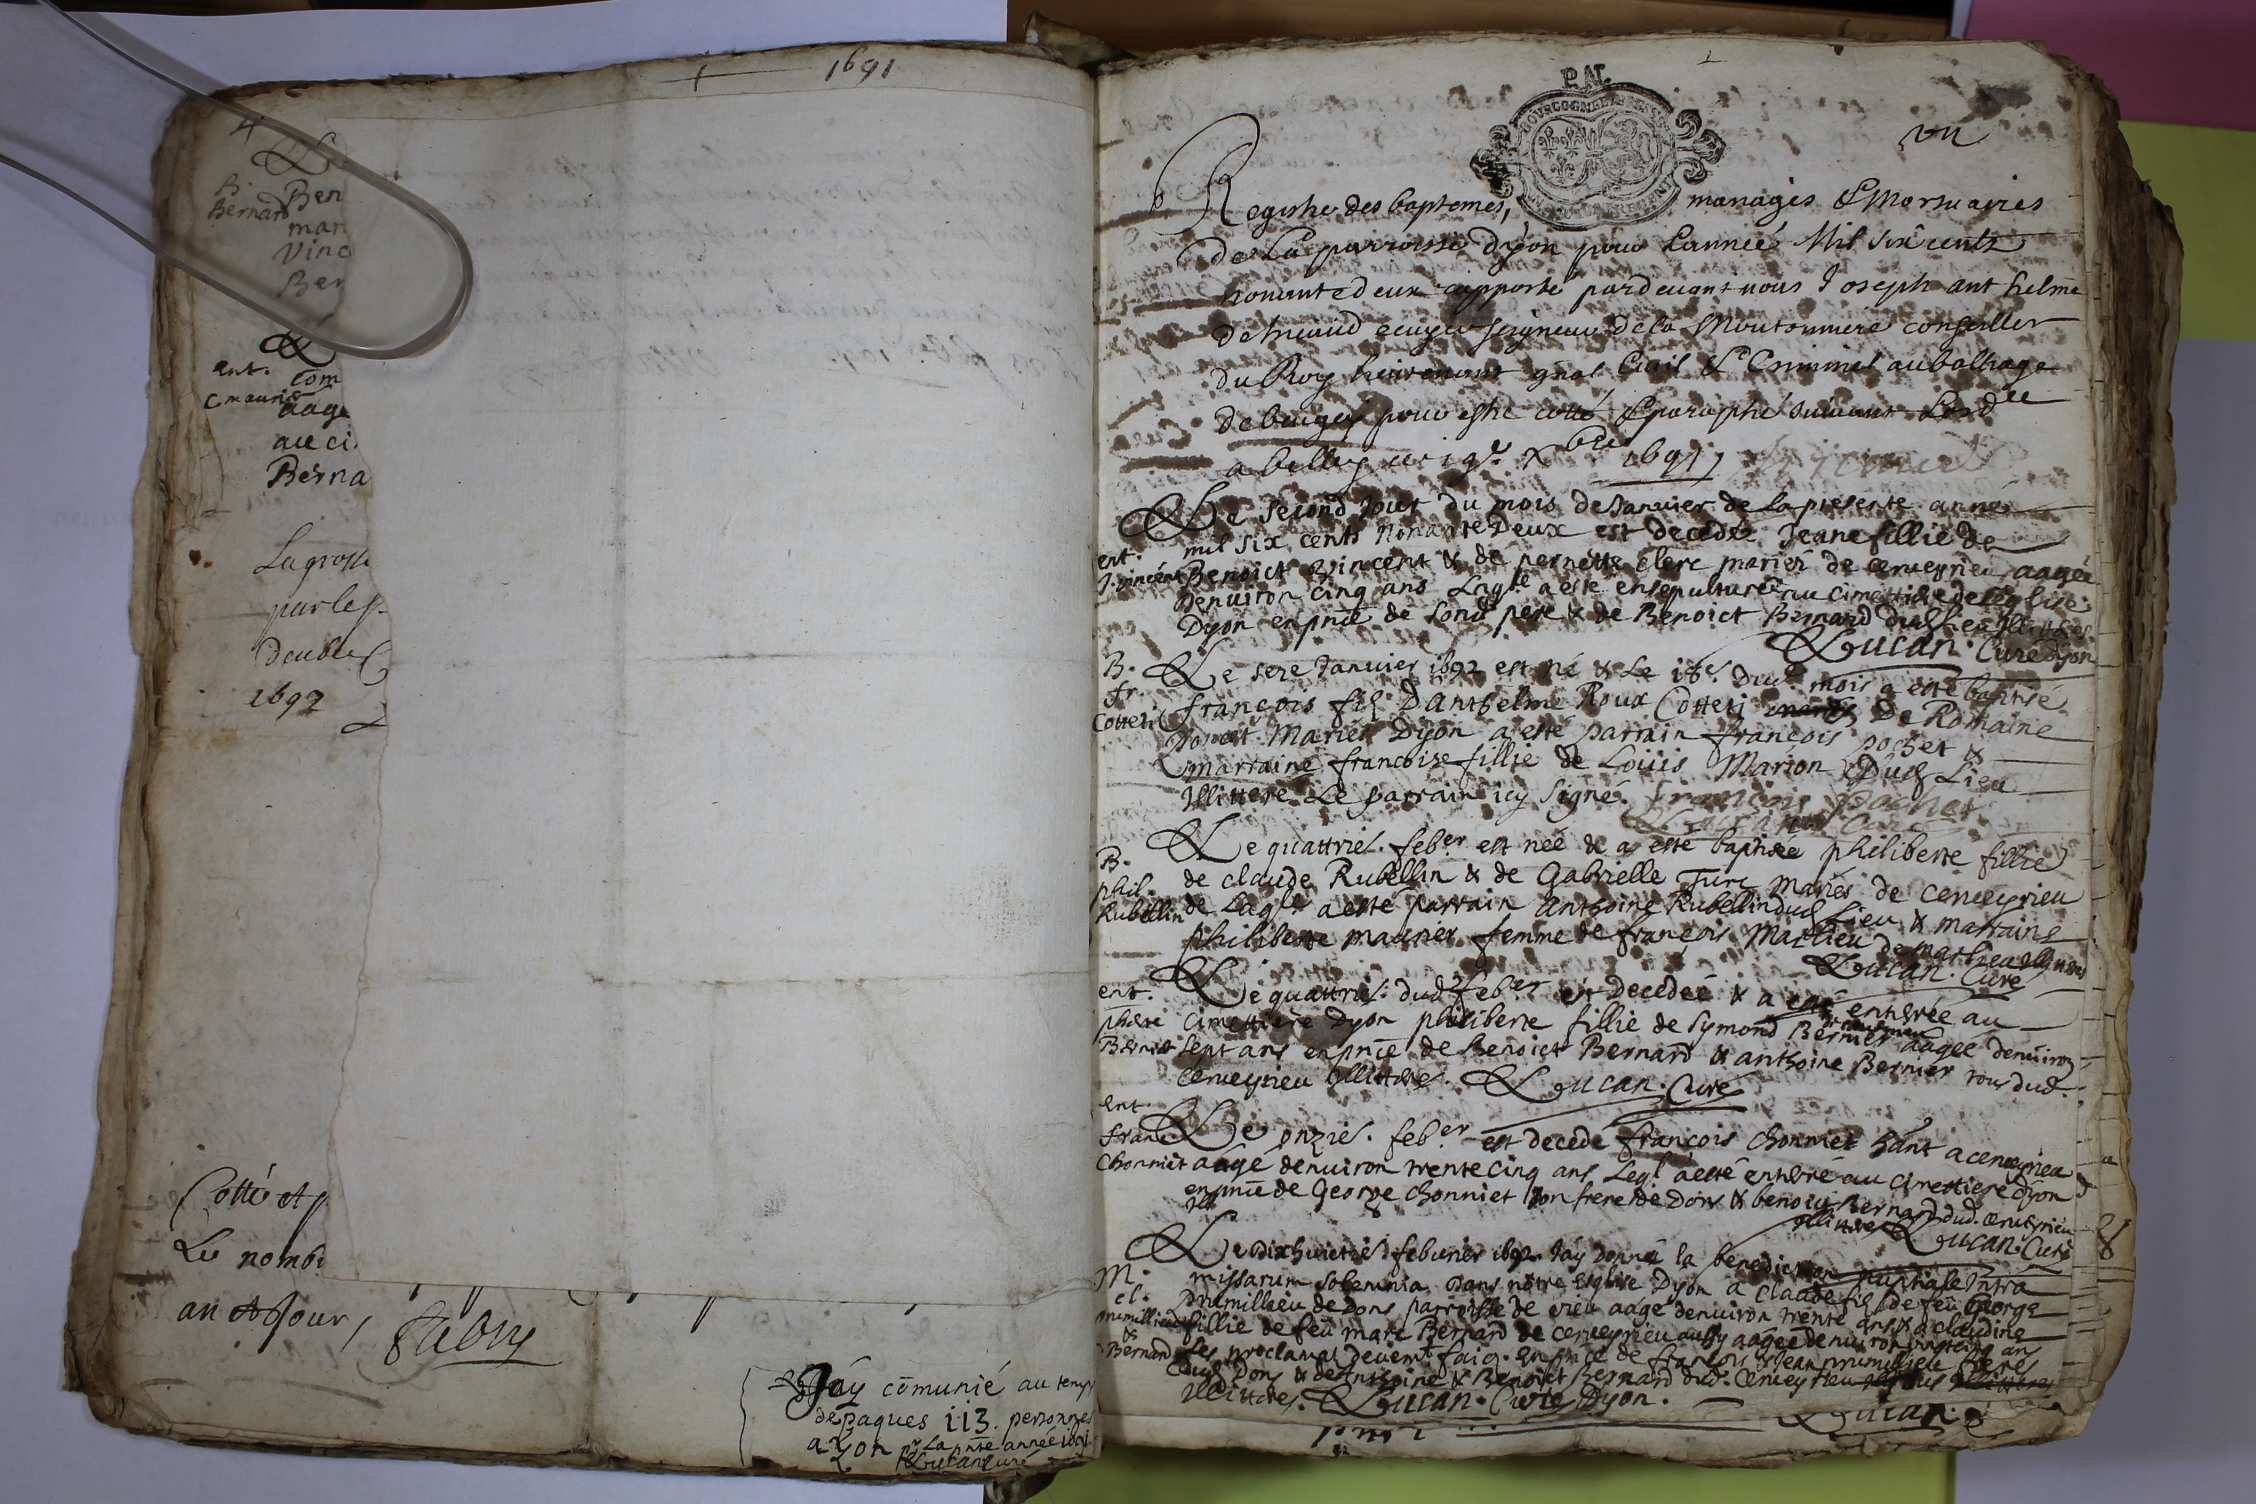 1691
Ben
B.
Bernard
man
Vinc
Ber
ent.
com
C mauris
aage
au ci
Berna
La grosse
par le s
double
1692
Cotté et p
Le nomb
an et Jour
Jáy cõmunié au temps
de paques 113. personnes
a yon pr la pnte année 1691
Lucan curé
P.M.
un
Registre des baptemes, mariages & Mortuaires
de La parroisse dyon pour Lannéé Mil six cents
nonante deux apporté pardevant nous Joseph anthelme
escuyer seigneur de la Moutonniere conseiller
du Roy lieutenant gnal Civil & Criminel au balliage
de bugey pour estre cotté & paraphé suivant Lordce
a belley ce 19e Xbre 1691
Le second Jour du mois de Janvier de la presente anneé
mil six cents Nonante Deux est decedée Jeane fillie de
ent.
J. vincent
Benoict vincent & de pernette Clerc mariés de cerveyrieu aagée
denviron cinq ans Laqle a esté ensepulturée au cimettiere de léglise
Dyon en pnce de sond pere & de Benoict Bernard dud Lieu Illitteres
Lucan. Curé dyon
B.
fr.
Cotteti
Le sere Janvier 1692 est né & Le 18e. dud mois a esté baptisé
françois fils Danthelme Roux Cotteti de Romaine
Mariés Dyon a esté parrain françois pochet &
marraine francoise fillie de Loüis Marion Dud Lieu
Illittere Le parrain icy signé. françois pochet
Lucan Curé
B.
phil.
Rubellin
Le quattrie. feber est néé & a esté baptisée philiberte fillie
de claude Rubellin & de Gabrielle Turc mariés de cerveyrieu
de Laqle. a esté parrain Anthoine Rubellin dud Lieu & marraine
philiberte maurier femme de françois Mathieu de
Lucan. Curé
ent.
phberte
Bernier
Le quattrie. dud feber est decedéé & a esté enterée au
cimettiere Dyon philiberte fillie de Symond Bernier aagée denviron
sept ans en pnce de Benoict Bernard & anthoine Bernier tous dud.
cerveyrieu Illitteres. Lucan. Curé
ent.
franc
Chonniet
Le onzie. feber est decedé françois Chonniet hant a cerveyrieu
aagé denviron trente cinq ans Leql. a esté enteré au cimettiere dyon
en pnce de George Chonniet son frere de Dons & benoict Bernard dud. cerveyrieu
Illitteres Lucan. Curé
M.
cl.
prumillieu
&
Bernard
Le Dix huictie. febvrier 1692 Jáy donné la benediction nuptiale Intra
missarum solemnia Dans nôtre Eglise Dyon a Claude fils de feü George
prumillieu de Dons parroisse de vieu aagé denviron trente ans & a claudine
fillie de feü marc Bernard de cerveyrieu aussy aagée denviron vingtcinq ans
Les proclamat. deüemt faict. en pnce de françois & Jean prumillieu freres
dud Dons & de Anthoine & Benoict Bernard dud. Cerveyrieu
Illitteres. Lucan. Curé Dyon.
Lucan.